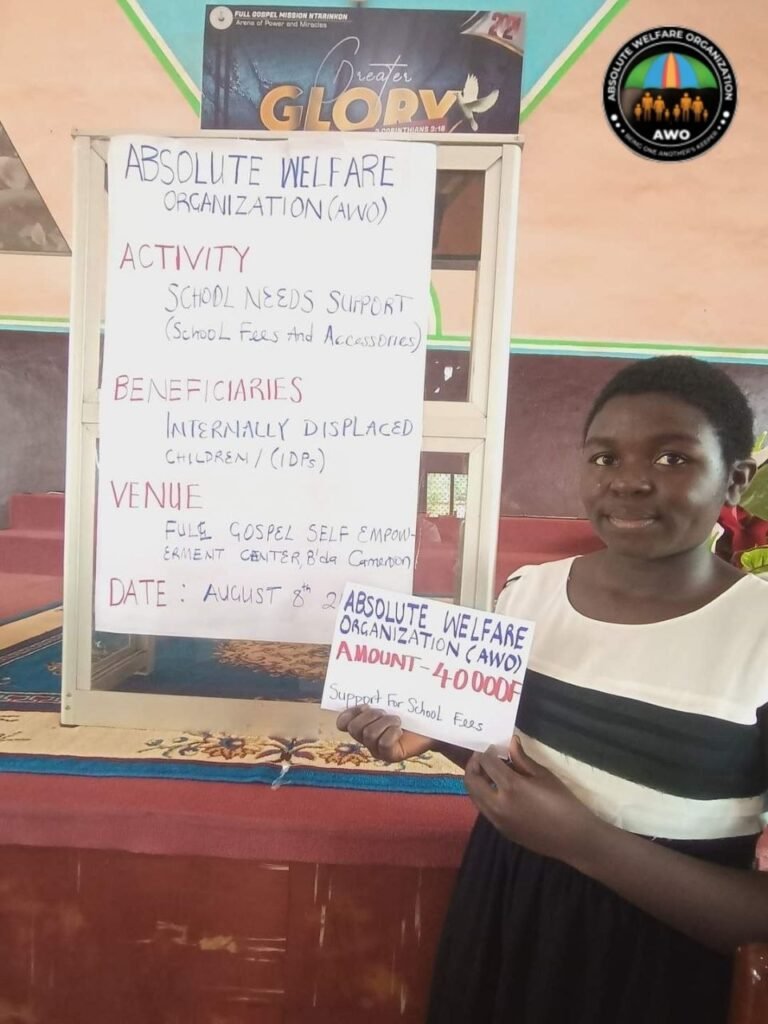 FULL GOSPEL MISSION NTARINKON
Arena of Power and Miracles
22
Greater
GLORY
2 CORINTHIANS 3:18
ABSOLUTE WELFARE ORGANIZATION
AWO
BEING ONE ANOTHER'S KEEPER
ABSOLUTE WELFARE
ORGANIZATION (AWO)
ACTIVITY
SCHOOL NEEDS SUPPORT
(School Fees And Accessories)
BENEFICIARIES
INTERNALLY DISPLACED
CHILDREN / (IDPs)
VENUE
FULL GOSPEL SELF EMPOW-
ERMENT CENTER, B'da Cameroon
DATE : AUGUST 8th 2
ABSOLUTE WELFARE
ORGANIZATION (AWO)
AMOUNT - 40000F
Support For School Fees